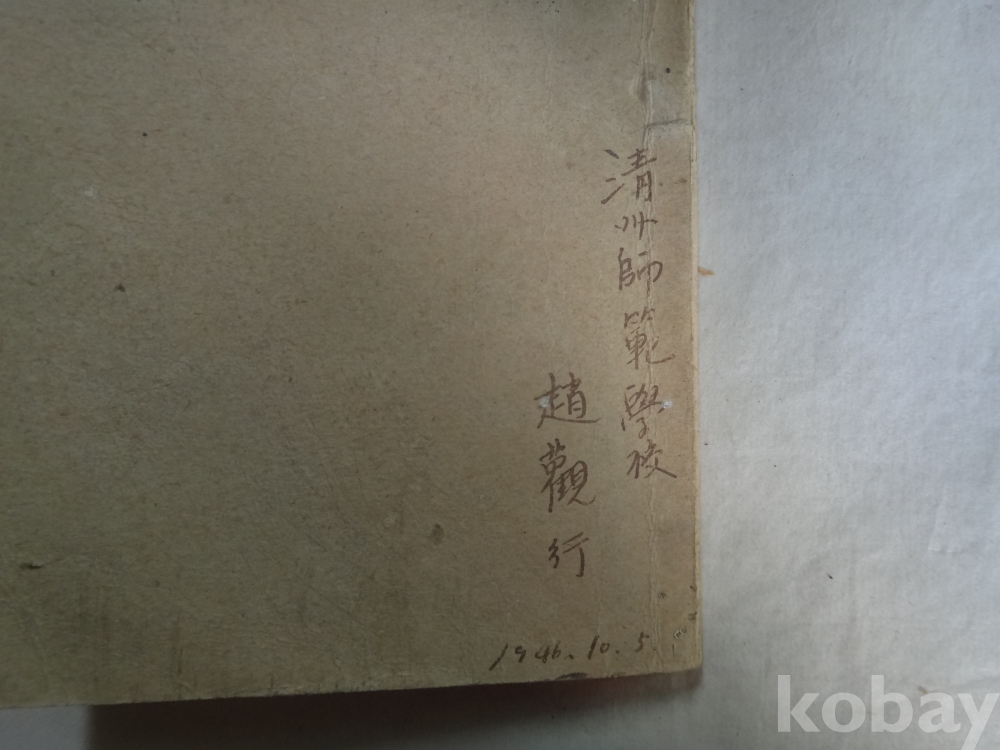 清州師範學校
趙觀行
1946. 10. 5.
kobay